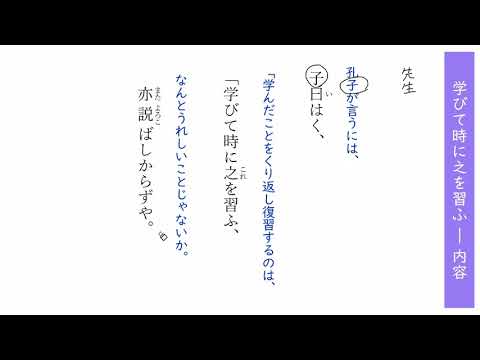 学びて時に之を習ふ ― 内容
先生
孔子が言うには、
子曰はく、
い
「学んだことをくり返し復習するのは、
「学びて時に之を習ふ、
これ
なんとうれしいことじゃないか。
亦説ばしからずや。
また よろこ